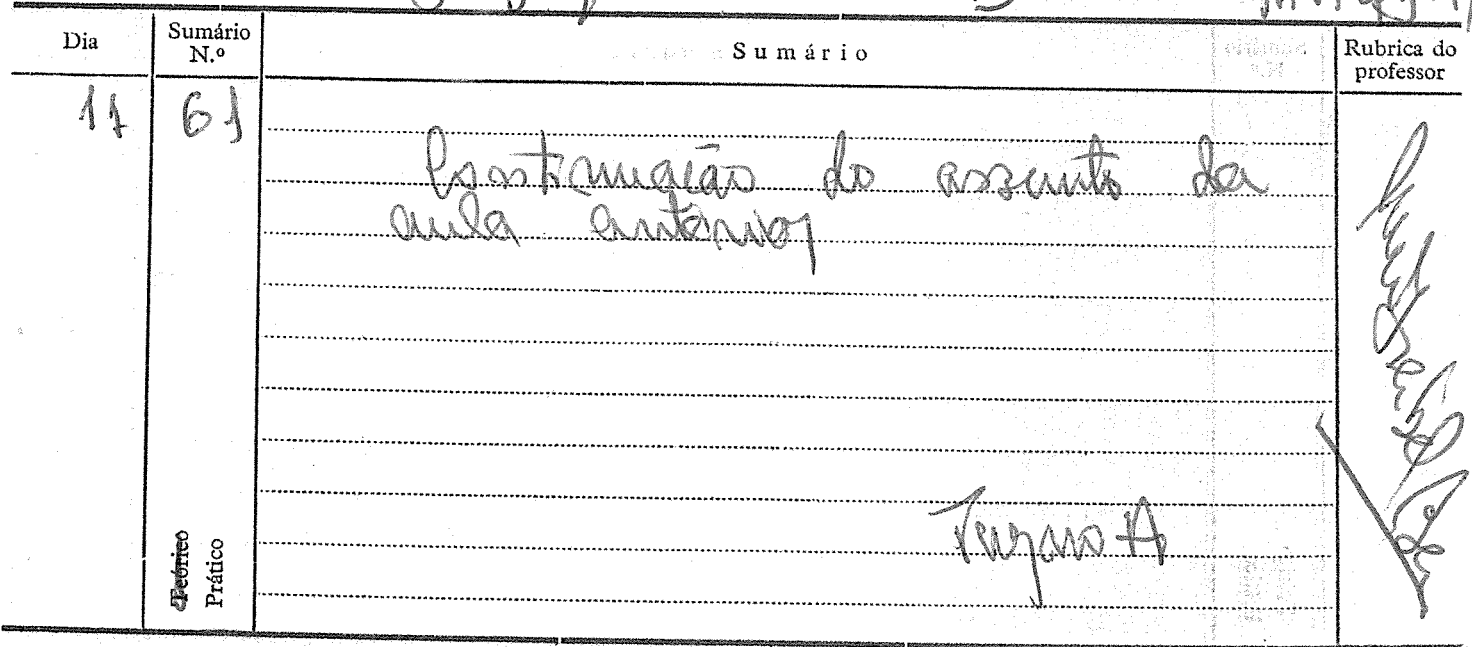 Dia
Sumário N.º
Sumário
Rubrica do professor
11
61
Continuação do assunto da
aula anterior
Turma A
Teórico
Prático